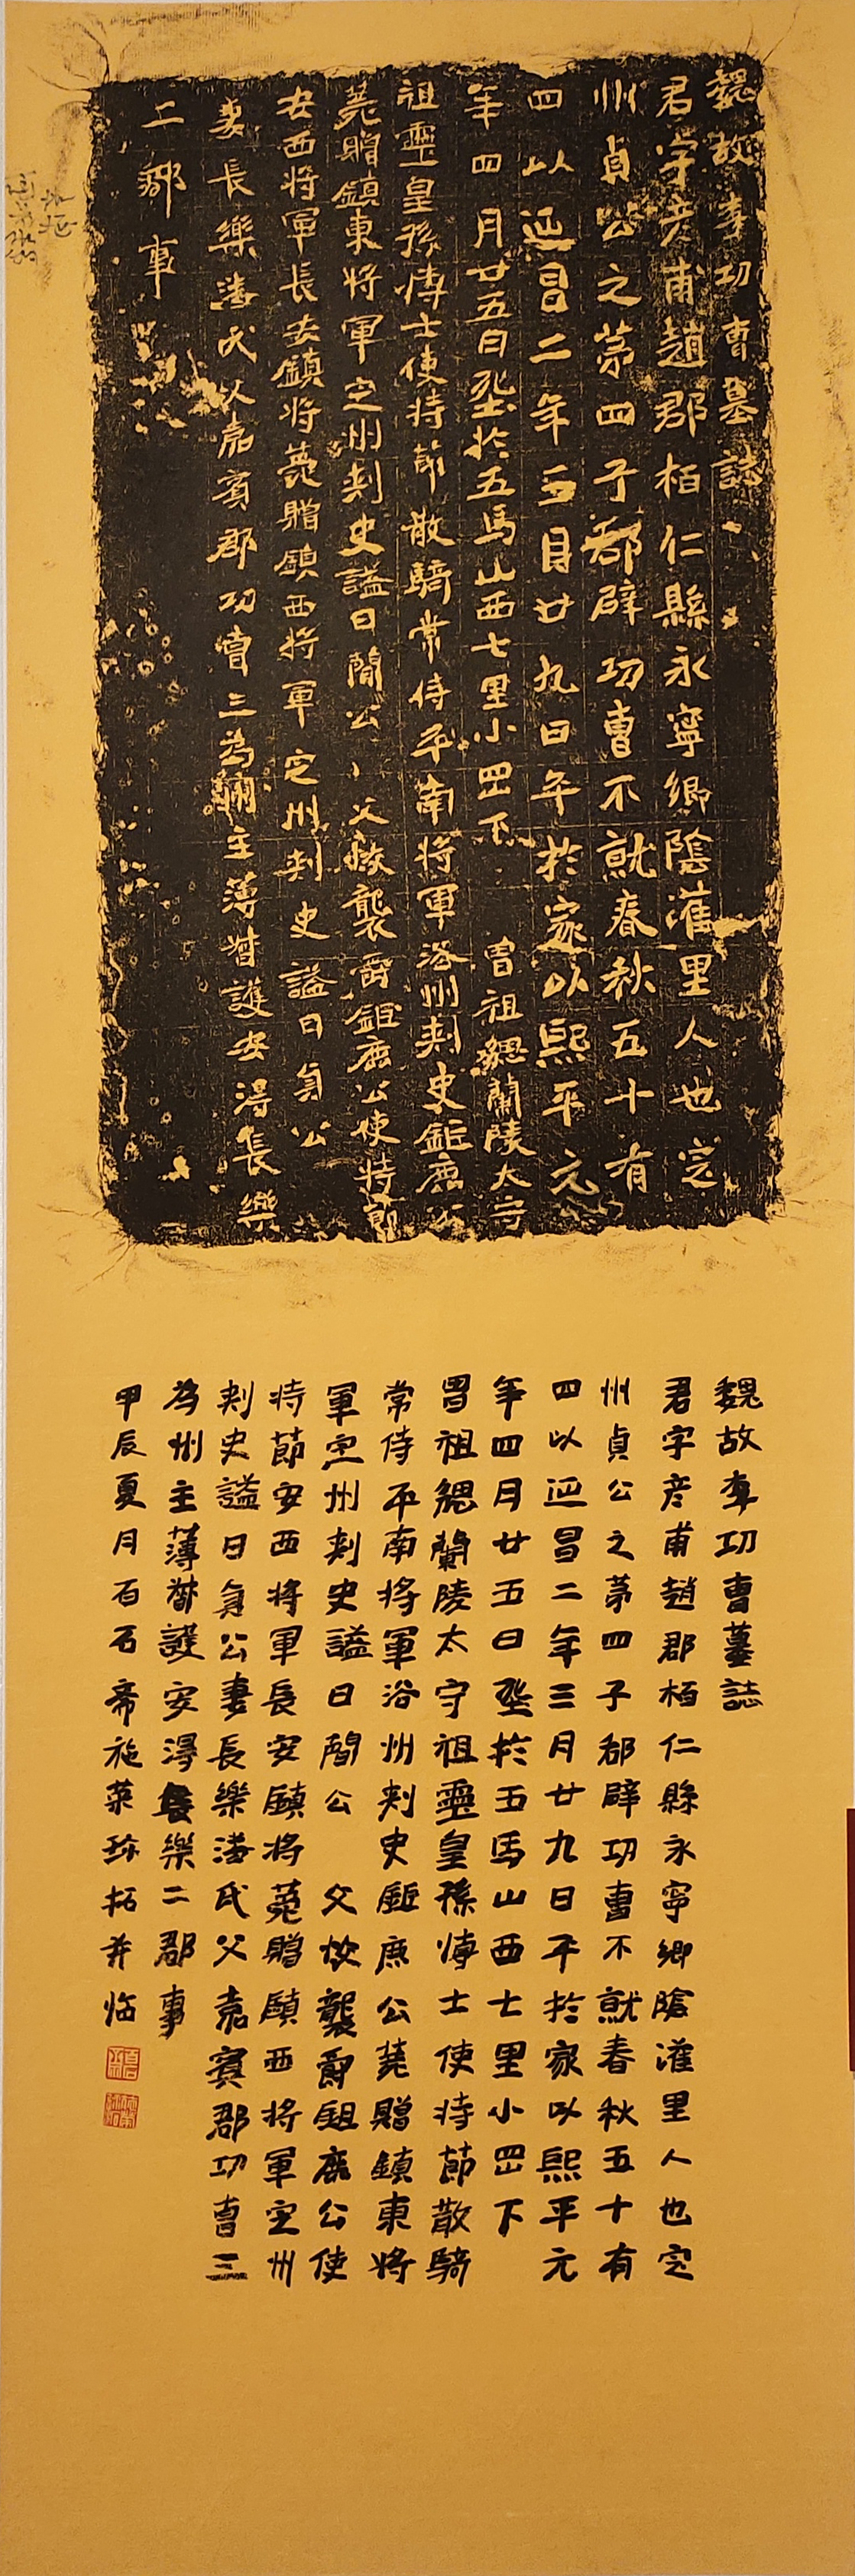 魏故李功曹墓誌
君字彦甫趙郡栢仁縣永寧鄉陰灌里人也定
州貞公之苐四子郡辟功曹不就春秋五十有
四以延昌二年三月廿九日卒於家以熙平元
年四月廿五日塟於五馬山西七里小罡下 曾祖勰蘭陵太守
祖靈皇孫博士使持節散騎常侍平南將軍洛州刺史鉅鹿公
薨贈鎮東將軍定州刺史謚曰簡公 父恢襲爵鉅鹿公使持節
安西將軍長安鎮將薨贈鎮西將軍定州刺史謚曰貞公
妻長樂潘氏父嘉賓郡功曹三為州主薄督護安得長樂
二郡事
魏故李功曹墓誌
君字彦甫趙郡栢仁縣永寧鄉陰灌里人也定
州貞公之苐四子郡辟功曹不就春秋五十有
四以延昌二年三月廿九日卒於家以熙平元
年四月廿五日塟於五馬山西七里小罡下
曾祖勰蘭陵太守祖靈皇孫博士使持節散騎
常侍平南將軍洛州刺史鉅鹿公薨贈鎮東將
軍定州刺史謚曰簡公 父恢襲爵鉅鹿公使
持節安西將軍長安鎮將薨贈鎮西將軍定州
刺史謚曰貞公妻長樂潘氏父嘉賓郡功曹三
為州主薄督護安得長樂二郡事
甲辰夏月百石齋施萊珎拓并臨